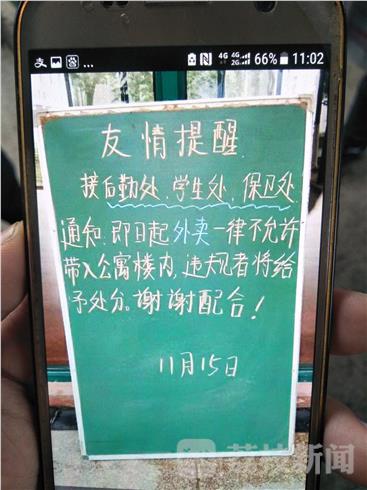 支 ... N 4G 4G 2G 66% 11:02
友情提醒
接后勤处、学生处、保卫处
通知,即日起外卖一律不允许
带入公寓楼内,违规者将给
予处分。谢谢配合!
11月15日
荔枝新闻